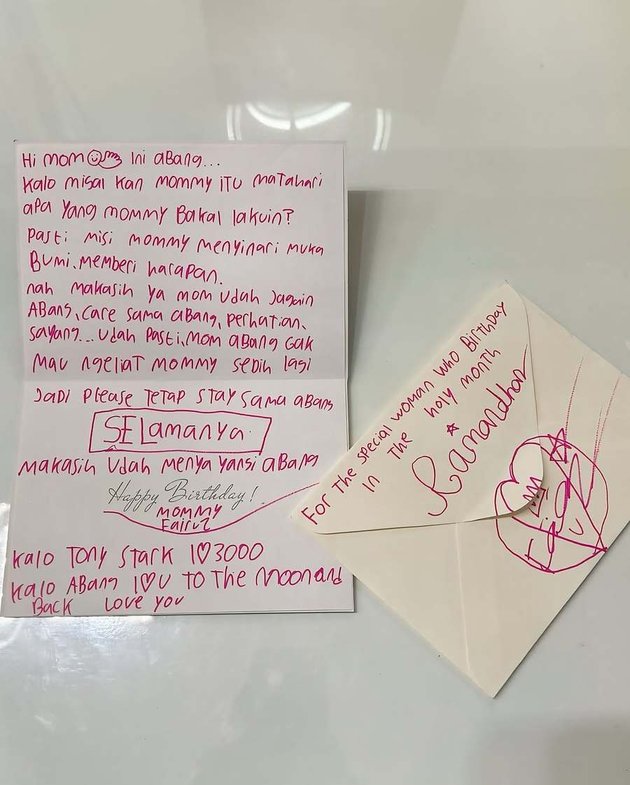 Hi mom ini abang...
kalo misal kan mommy itu matahari
apa yang mommy bakal lakuin?
pasti misi mommy menyinari muka
Bumi, memberi harapan.
nah makasih ya mom udah jagain
Abang, care sama abang, perhatian,
sayang... udah pasti, mom abang gak
mau ngeliat mommy sedih lagi
Jadi please tetap stay sama abang
SELamanya
makasih udah menyayangsi abang
Happy Birthday!
mommy
Fairuz
kalo Tony Stark I♡3000
kalo Abang I♡U to the moon and
Back Love you
For the special woman who Birthday
in the holy month
Ramandhan